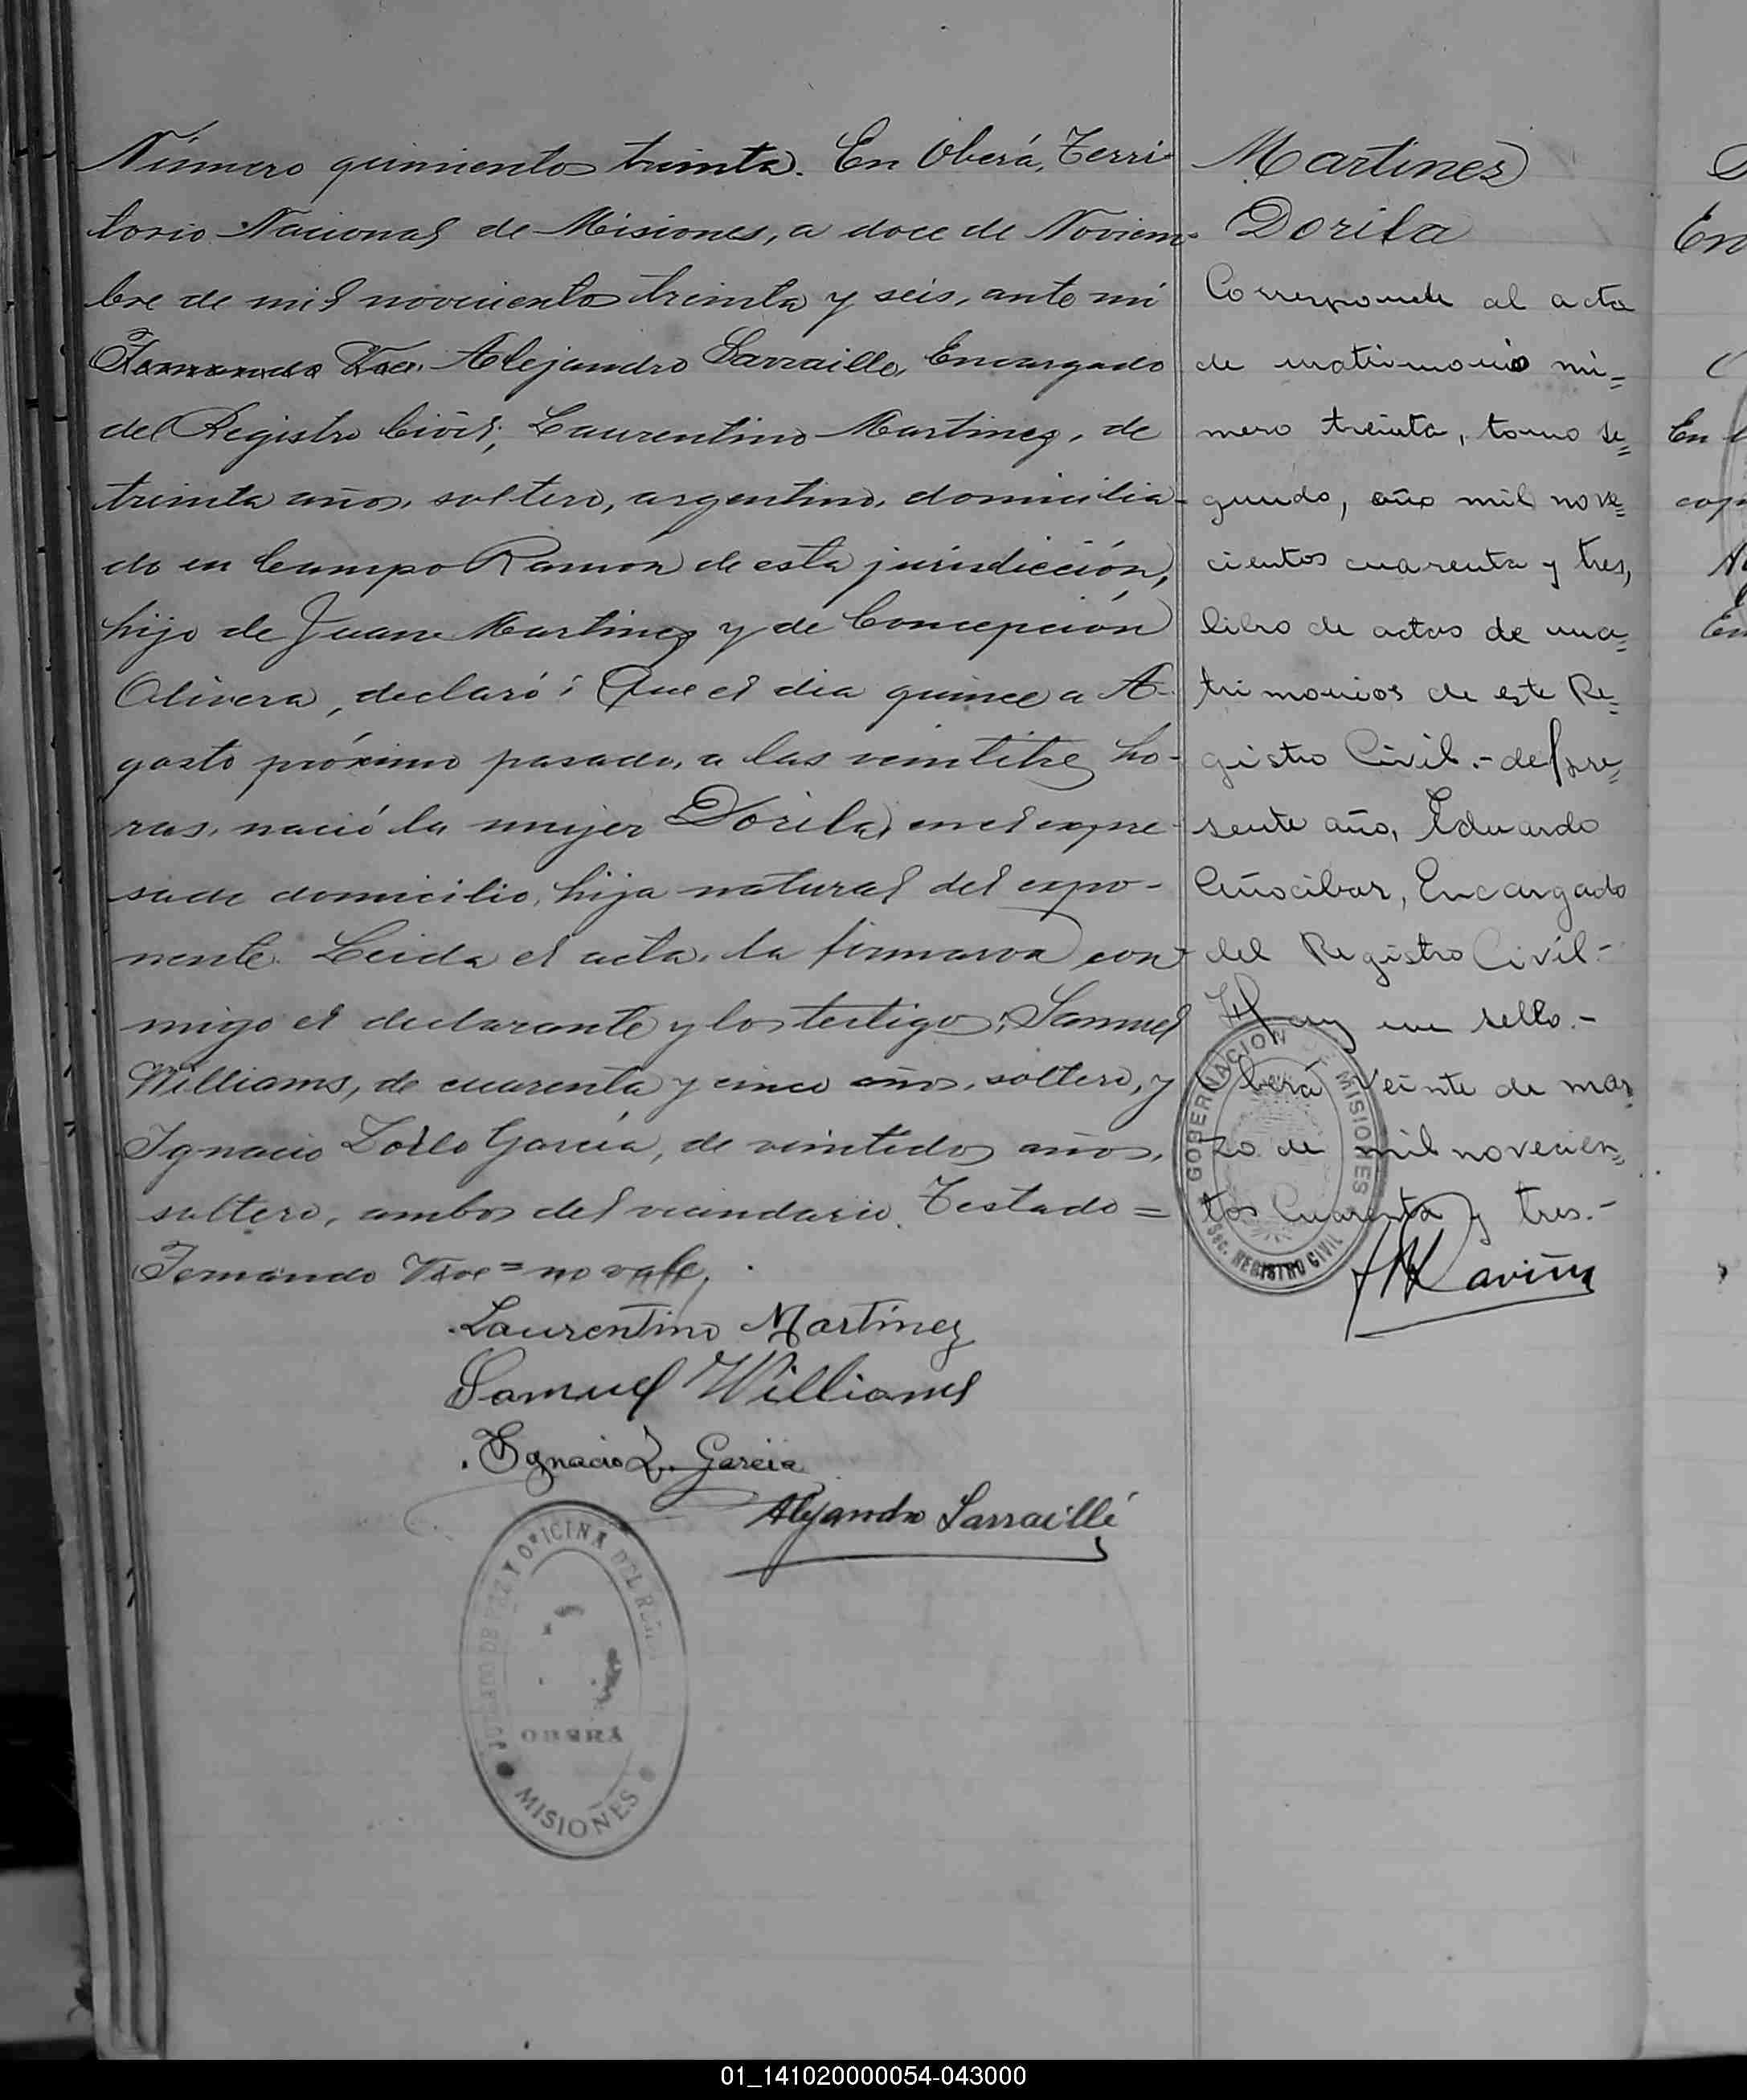 Número quinientos treinta. En Oberá, Terri-
torio Nacional de Misiones, a doce de Noviem-
bre de mil novecientos treinta y seis, ante mi
Fernando Alejandro Sarraillé, Encargado
del Registro Civil, Laurentino Martinez, de
treinta años, soltero, argentino, domicilia-
do en Campo Ramón de esta jurisdicción,
hijo de Juan Martinez y de Concepción
Olivera, declaró: Que el dia quince a A-
gosto próximo pasado, a las veintitres ho-
ras, nació la mujer Dorila, en el expre-
sado domicilio, hija natural del expo-
nente. Leida el acta, la firmaron con-
migo el declarante y los testigos: Samuel
Williams, de cuarenta y cinco años, soltero, y
Ignacio Zoilo García, de veintidos años,
soltero, ambos del vecindario. Testado =
Fernando = no vale.
Laurentino Martinez
Samuel Williams
Ignacio Z. Garcia
Alejandro Sarraillé
JUZGADO DE PAZ Y OFICINA DEL
OBERA
MISIONES
Martinez
Dorila
Corresponde al acta
de matrimonio nú=
mero treinta, tomo se=
gundo, año mil nove=
cientos cuarenta y tres,
libro de actas de ma=
trimonios de este Re=
gistro Civil.- del pre=
sente año, Eduardo
Añocibar, Encargado
del Registro Civil.-
Hay un sello.-
Oberá veinte de mar
zo de mil novecien=
tos Cuarenta y tres.-
GOBERNACION DE MISIONES
Sec. REGISTRO CIVIL
En
En
01_141020000054-043000